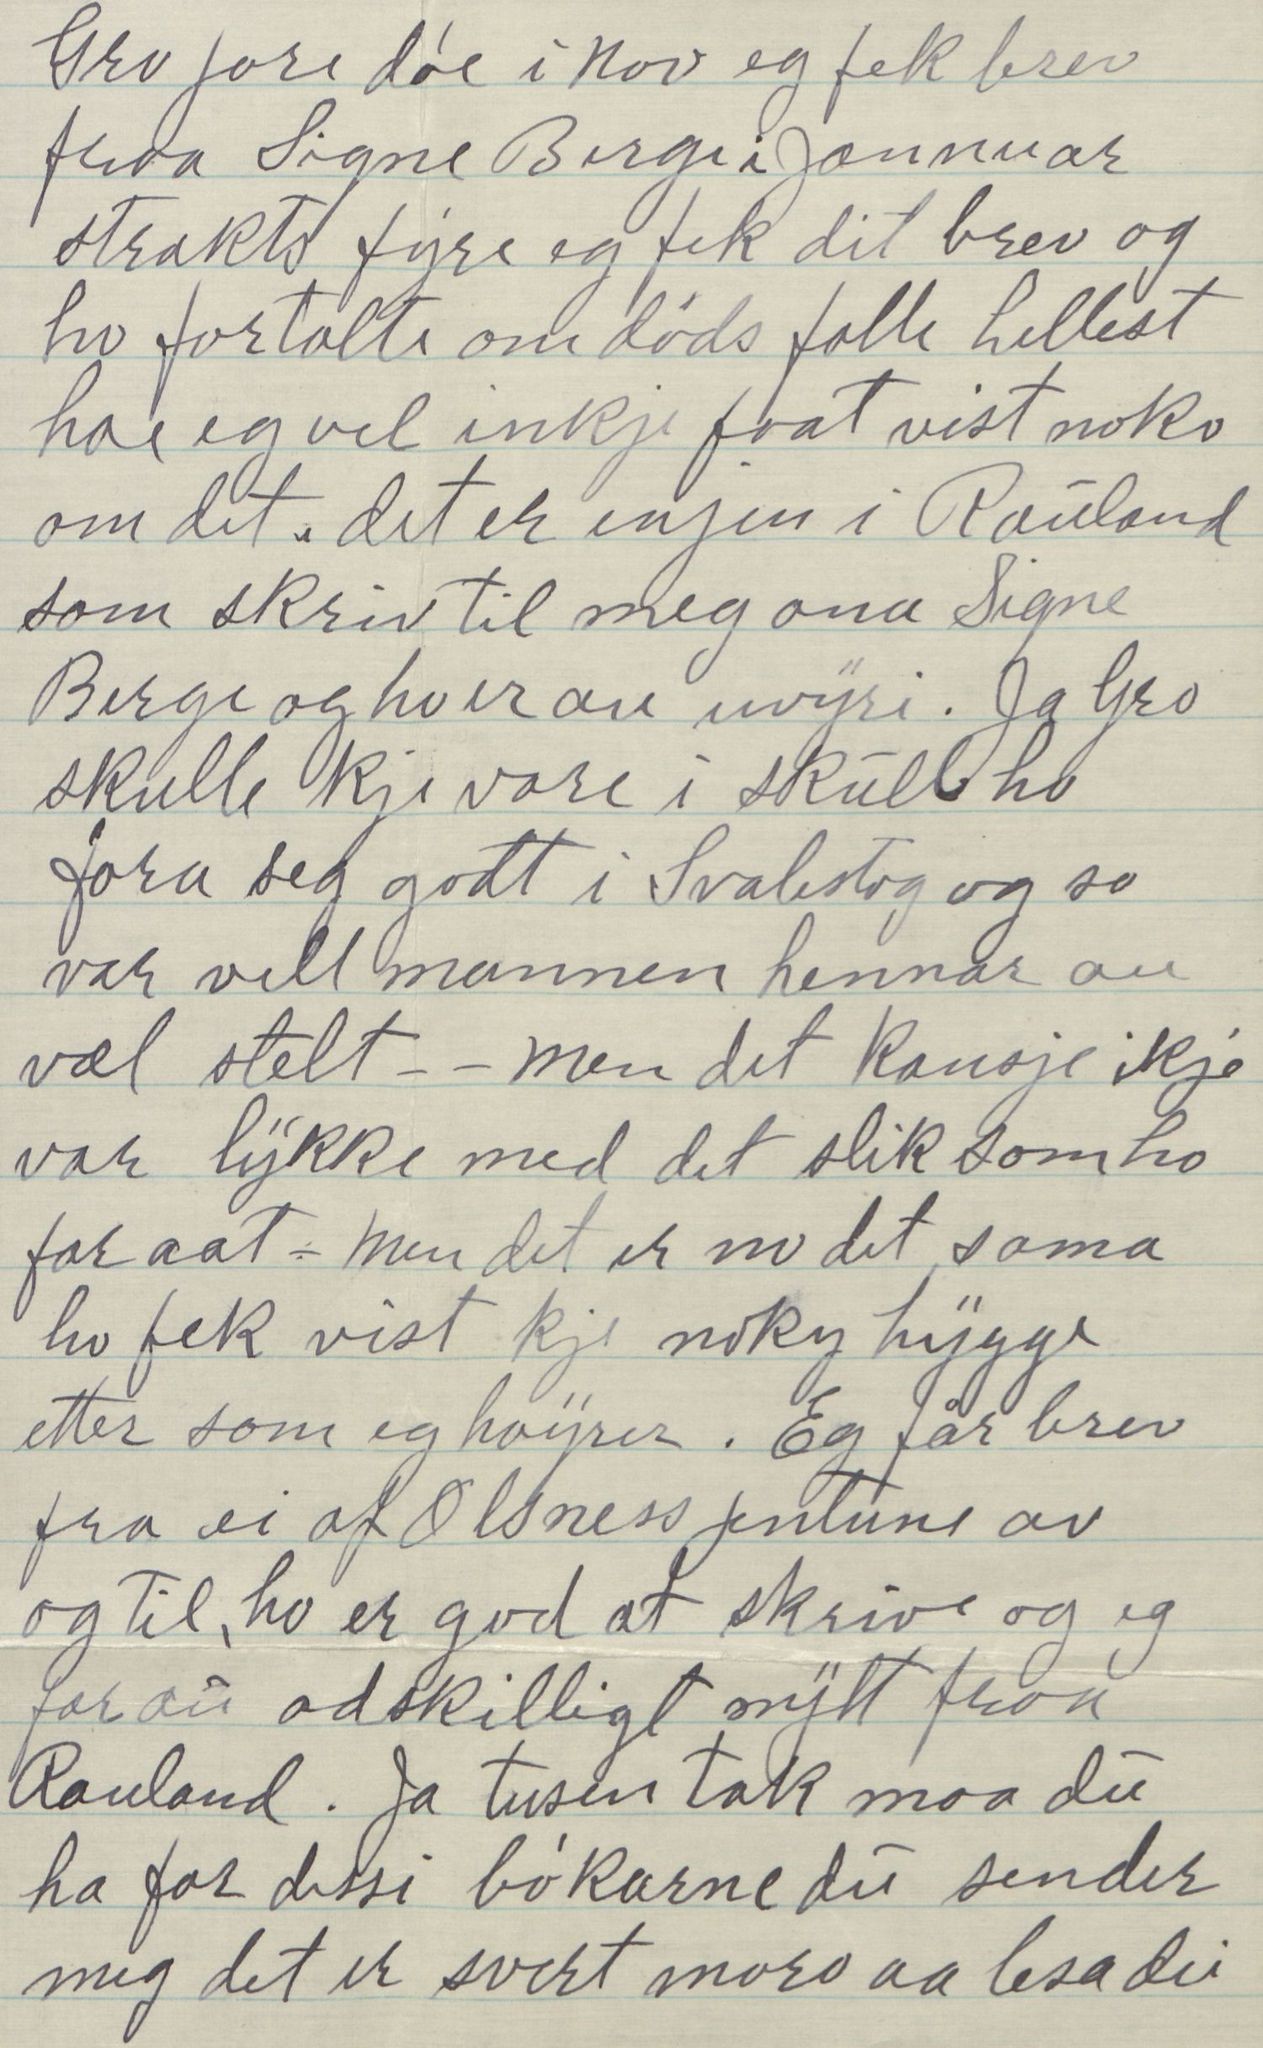 Gro jore døe i Nov eg fek brev
fraa Signe Berge i Jannuar
strakts fyre eg fek dit brev og
ho fortalte om døds falle hellest
hae eg vel inkje faat vist noko
om det. det er injen i Rauland
som skriv til meg ana Signe
Berge og ho er au uvyri. Ja Gro
skulle kje vare i skull ho
jora seg godt i Svalestog og so
var vell mannen hennar au
væl stelt -- Men det kansje ikje
var lykke med det slik som ho
for aat - Men det er no det sama
ho fek vist kje noky hygge
etter som eg høyrer. Eg får brev
fra ei af Olsness jentune av
og til, ho er god at skrive og eg
far au adskilligt nytt fraa
Rauland. Ja tusen tak maa du
ha for dessi bøkarne du sender
meg det er svert moro aa lesa du